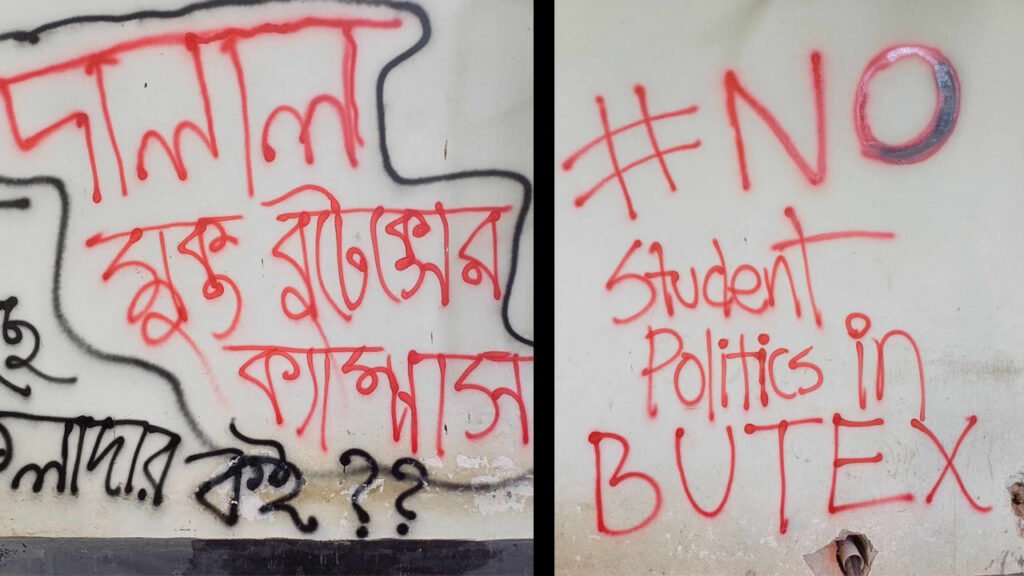 দালাল
মুক্ত বুটেক্সের
ক্যাম্পাস
কই ??
#NO
Student
Politics in
BUTEX